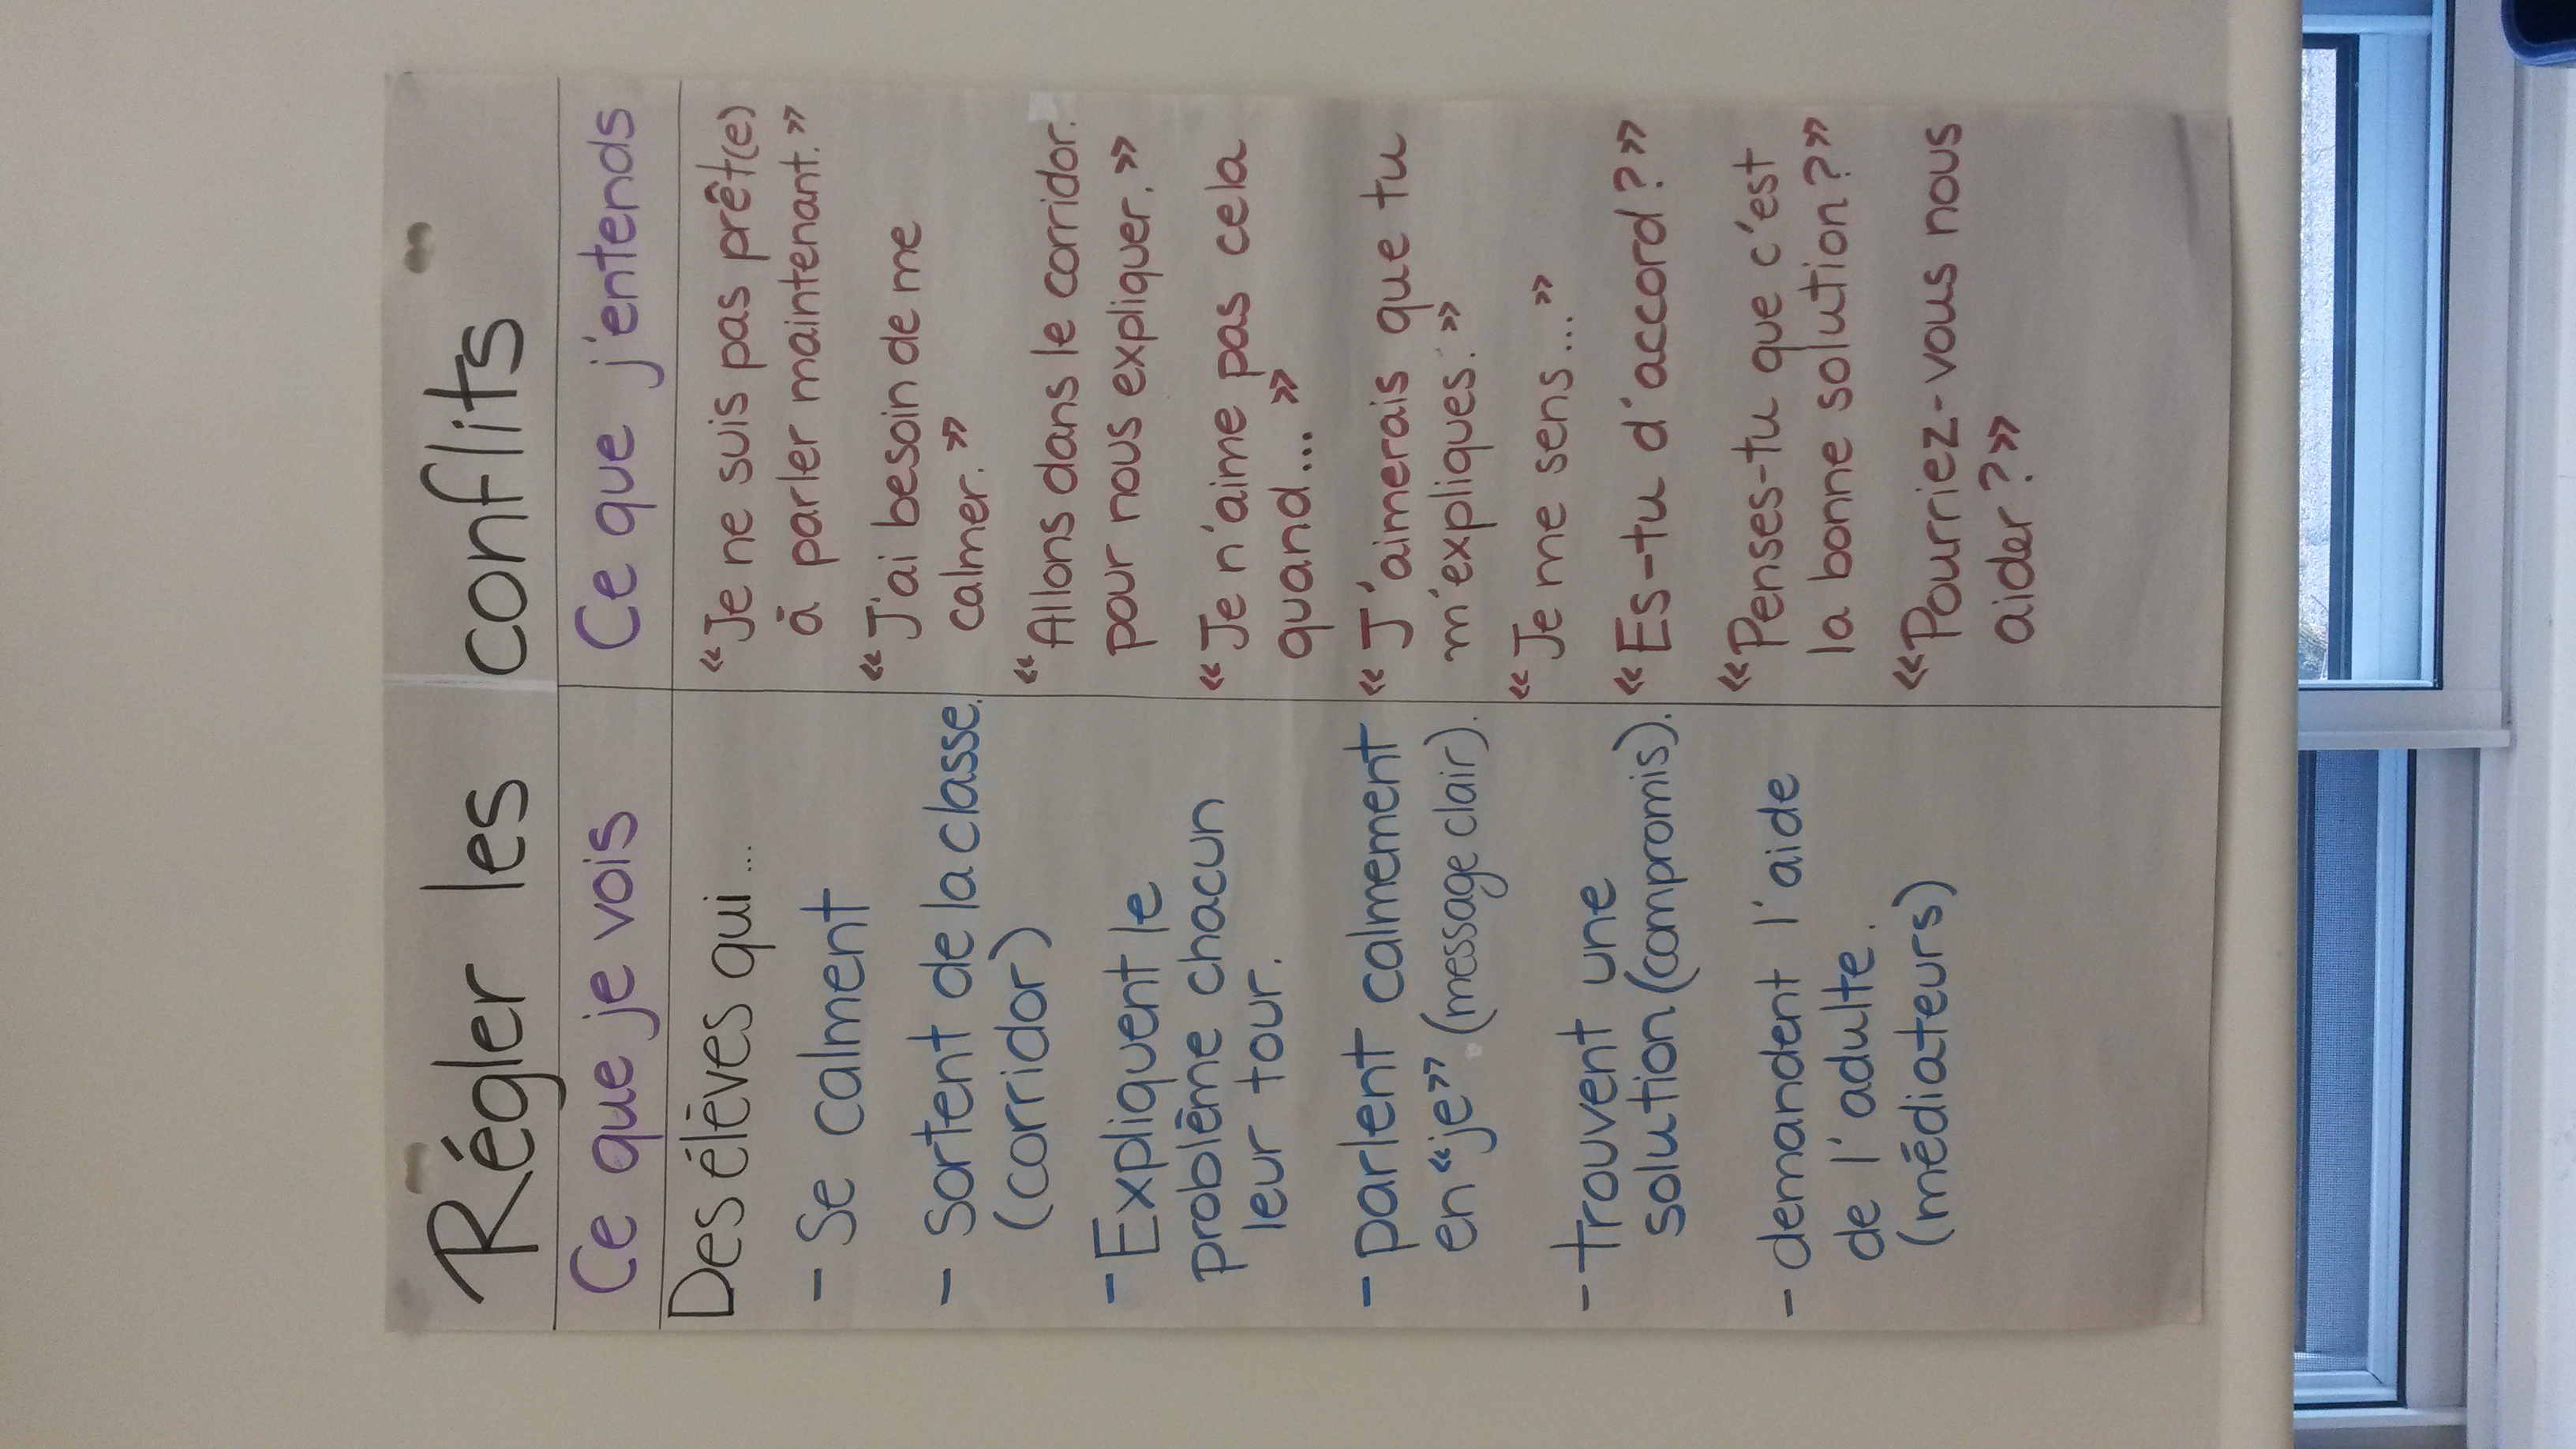 Régler les conflits
Ce que je vois
Des élèves qui...
- Se calment
- Sortent de la classe.
(corridor)
- Expliquent le
problème chacun
leur tour.
- parlent calmement
en "je" (message clair).
- trouvent une
solution (compromis).
- demandent l'aide
de l'adulte.
(médiateurs)
Ce que j'entends
« Je ne suis pas prêt(e)
à parler maintenant. »
« J'ai besoin de me
calmer. »
« Allons dans le corridor.
pour nous expliquer. »
« Je n'aime pas cela
quand... »
« J'aimerais que tu
m'expliques. »
« Je me sens... »
« Es-tu d'accord ? »
« Penses-tu que c'est
la bonne solution ? »
« Pourriez-vous nous
aider ? »